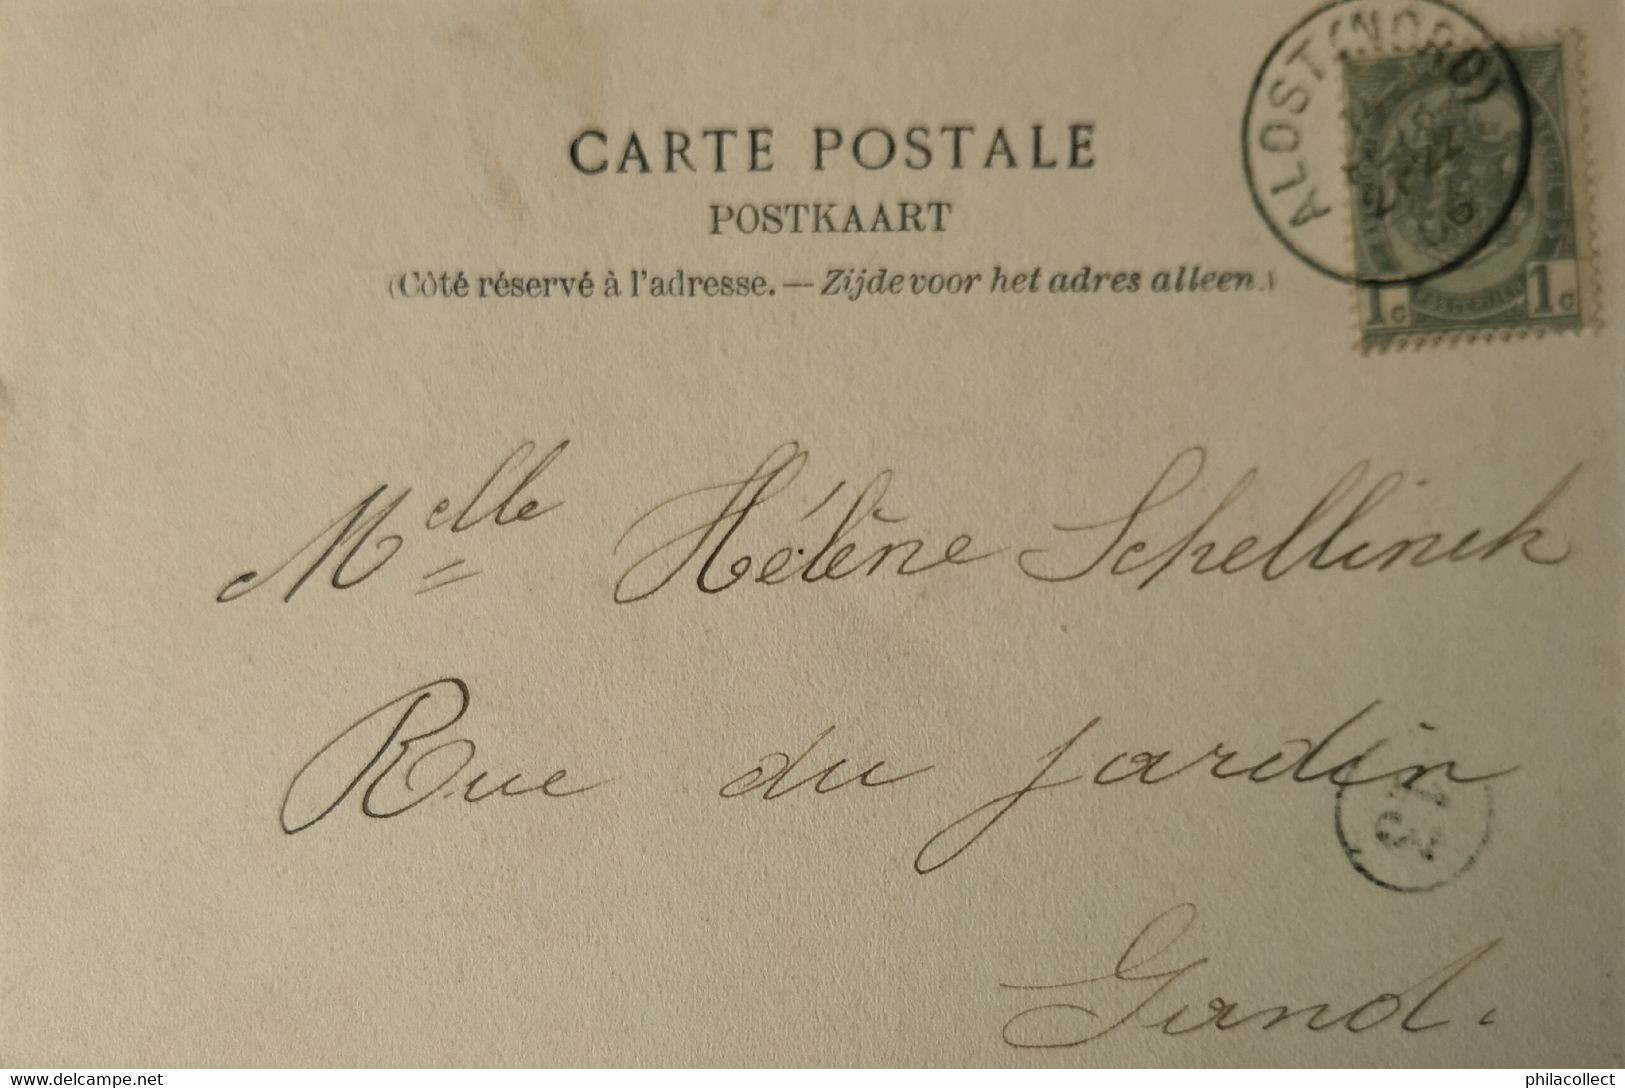 ALOST (NORD)
CARTE POSTALE
POSTKAART
(Côté réservé à l'adresse. — Zijde voor het adres alleen.)
1c 1c
Melle Hélène Schellinck
Rue du jardin
Gand.
www.delcampe.net philacollect